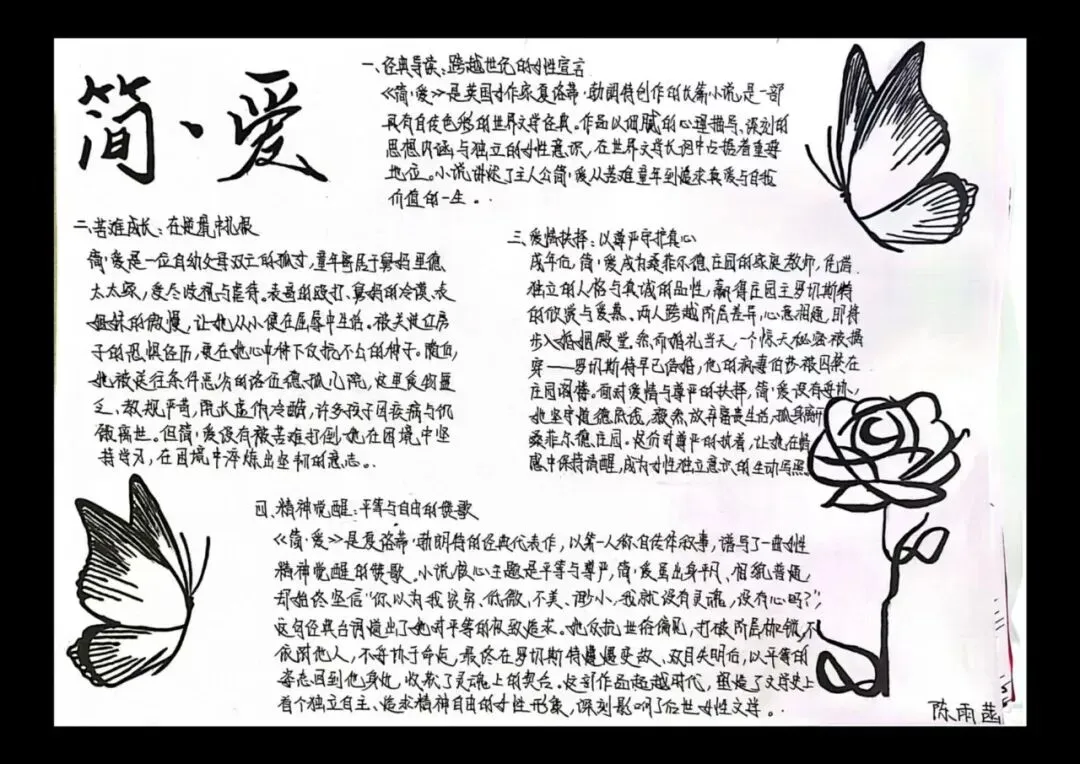 简·爱
一、经典导读：跨越世纪的女性宣言
《简·爱》是英国女作家夏洛蒂·勃朗特创作的长篇小说，是一部
具有自传色彩的世界文学经典。作品以细腻的心理描写、深刻的
思想内涵与独立的女性意识，在世界文学长河中占据着重要
地位。小说讲述了主人公简·爱从苦难童年到追求真爱与自我
价值的一生。
二、苦难成长：在逆境中扎根
简·爱是一位自幼父母双亡的孤女，童年寄居于舅妈里德
太太家，受尽歧视与虐待。表哥的殴打、舅妈的冷漠、表
姐妹的傲慢，让她从小便在屈辱中生活。被关进红房
子的恐惧经历，更在她心中种下反抗不公的种子。随后，
她被送往条件恶劣的洛伍德孤儿院，这里食物匮
乏、教规严苛，院长虚伪冷酷，许多孩子因疾病与饥
饿离世。但简·爱没有被苦难打倒，她在困境中坚
持学习，在困境中淬炼出坚韧的意志。
三、爱情抉择：以尊严守护真心
成年后，简·爱成为桑菲尔德庄园的家庭教师，凭借
独立的人格与真诚的品性，赢得庄园主罗切斯特
的欣赏与爱慕。两人跨越阶层差异，心意相通，即将
步入婚姻殿堂。然而婚礼当天，一个惊天秘密被揭
穿——罗切斯特早已结婚，他的疯妻伯莎被囚禁在
庄园阁楼。面对爱情与尊严的抉择，简·爱没有妥协，
她坚守道德底线，毅然放弃富贵生活，孤身离开
桑菲尔德庄园。这份对尊严的执着，让她在情
感中保持清醒，成为女性独立意识的生动写照
四、精神觉醒：平等与自由的赞歌
《简·爱》是夏洛蒂·勃朗特的经典代表作，以第一人称自传体叙事，谱写了一曲女性
精神觉醒的赞歌。小说核心主题是平等与尊严，简·爱虽出身平凡、相貌普通，
却始终坚信“你以为我贫穷、低微、不美、渺小，我就没有灵魂，没有心吗？”，
这句经典台词道出了她对平等的极致追求。她反抗世俗偏见，打破阶层枷锁，不
依附他人，不妥协于命运，最终在罗切斯特遭遇变故、双目失明后，以平等的
姿态回到他身边，收获了灵魂上的契合。这部作品超越时代，塑造了文学史上
首个独立自主、追求精神自由的女性形象，深刻影响了后世女性文学。
陈雨菡